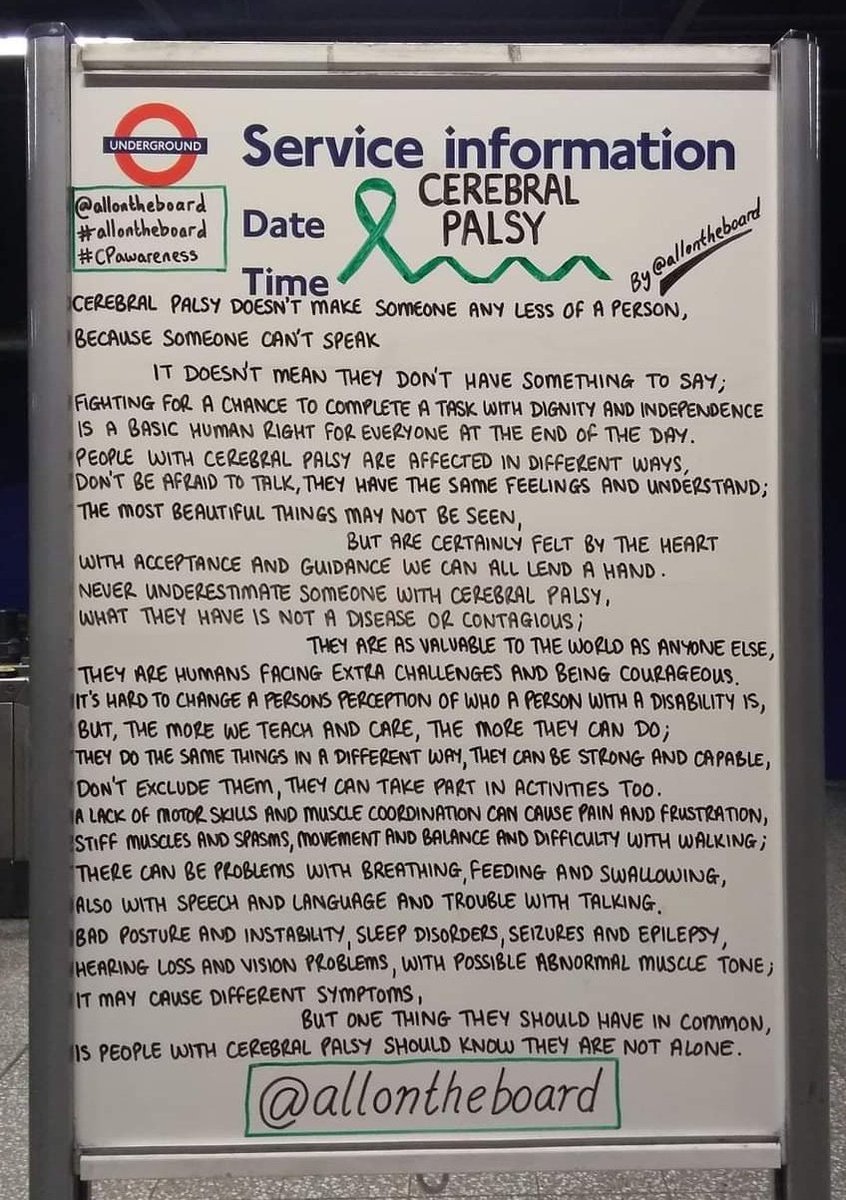 UNDERGROUND
Service information
@allontheboard
#allontheboard
#CPawareness
Date
Time
CEREBRAL
PALSY
By @allontheboard
CEREBRAL PALSY DOESN'T MAKE SOMEONE ANY LESS OF A PERSON,
BECAUSE SOMEONE CAN'T SPEAK
IT DOESN'T MEAN THEY DON'T HAVE SOMETHING TO SAY;
FIGHTING FOR A CHANCE TO COMPLETE A TASK WITH DIGNITY AND INDEPENDENCE
IS A BASIC HUMAN RIGHT FOR EVERYONE AT THE END OF THE DAY.
PEOPLE WITH CEREBRAL PALSY ARE AFFECTED IN DIFFERENT WAYS,
DON'T BE AFRAID TO TALK, THEY HAVE THE SAME FEELINGS AND UNDERSTAND;
THE MOST BEAUTIFUL THINGS MAY NOT BE SEEN,
BUT ARE CERTAINLY FELT BY THE HEART
WITH ACCEPTANCE AND GUIDANCE WE CAN ALL LEND A HAND.
NEVER UNDERESTIMATE SOMEONE WITH CEREBRAL PALSY,
WHAT THEY HAVE IS NOT A DISEASE OR CONTAGIOUS;
THEY ARE AS VALUABLE TO THE WORLD AS ANYONE ELSE,
THEY ARE HUMANS FACING EXTRA CHALLENGES AND BEING COURAGEOUS.
IT'S HARD TO CHANGE A PERSONS PERCEPTION OF WHO A PERSON WITH A DISABILITY IS,
BUT, THE MORE WE TEACH AND CARE, THE MORE THEY CAN DO;
THEY DO THE SAME THINGS IN A DIFFERENT WAY, THEY CAN BE STRONG AND CAPABLE,
DON'T EXCLUDE THEM, THEY CAN TAKE PART IN ACTIVITIES TOO.
A LACK OF MOTOR SKILLS AND MUSCLE COORDINATION CAN CAUSE PAIN AND FRUSTRATION,
STIFF MUSCLES AND SPASMS, MOVEMENT AND BALANCE AND DIFFICULTY WITH WALKING;
THERE CAN BE PROBLEMS WITH BREATHING, FEEDING AND SWALLOWING,
ALSO WITH SPEECH AND LANGUAGE AND TROUBLE WITH TALKING.
BAD POSTURE AND INSTABILITY, SLEEP DISORDERS, SEIZURES AND EPILEPSY,
HEARING LOSS AND VISION PROBLEMS, WITH POSSIBLE ABNORMAL MUSCLE TONE;
IT MAY CAUSE DIFFERENT SYMPTOMS,
BUT ONE THING THEY SHOULD HAVE IN COMMON,
IS PEOPLE WITH CEREBRAL PALSY SHOULD KNOW THEY ARE NOT ALONE.
@allontheboard